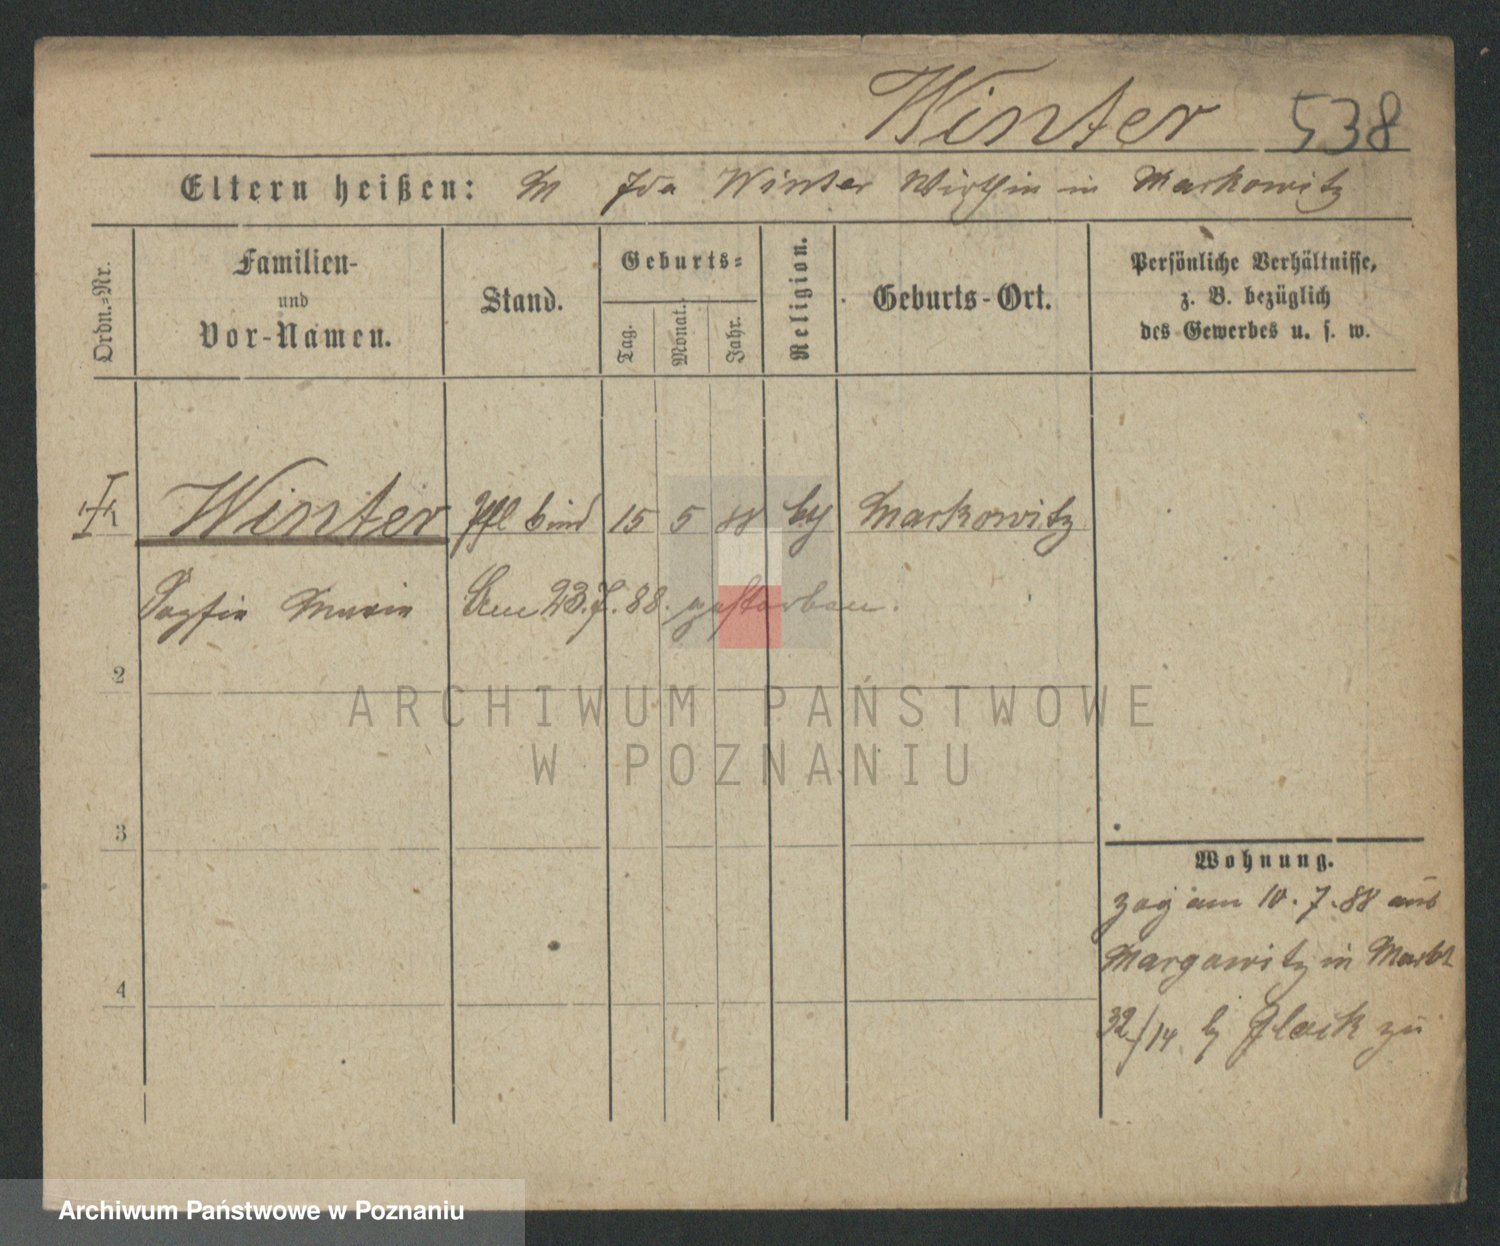 Winter 538
Eltern heißen: M Ida Winter Wirthin in Markowitz
Ordn.-Nr.
Familien-
und
Vor-Namen.
Stand.
Geburts-
Tag.
Monat.
Jahr.
Religion.
Geburts-Ort.
Persönliche Verhältnisse,
z. B. bezüglich
des Gewerbes u. s. w.
Winter 15 5 88 Markowitz
Sophie Marie Am 23.7.88. gestorben.
2
3
4
Wohnung.
zog am 10.7.88 aus
Margowitz in Markt
32/14 b zu
ARCHIWUM PAŃSTWOWE
W POZNANIU
Archiwum Państwowe w Poznaniu